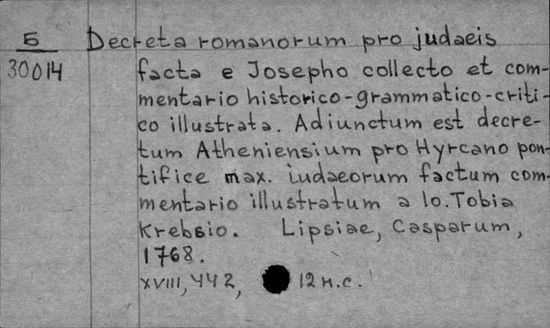 Б Decreta romanorum pro judaeis
30014 facta e Josepho collecto et com-
mentario historico-grammatico-criti-
co illustrata. Adiunctum est decre-
tum Atheniensium pro Hyrcano pon-
tifice max. iudaeorum factum com-
mentario illustratum a Io. Tobia
Krebsio. Lipsiae, Casparum,
1768.
XVIII, 442, 12 н.с.